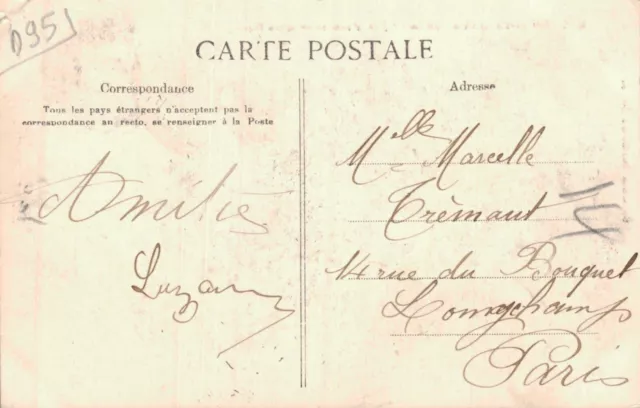 D951
CARTE POSTALE
Correspondance
Tous les pays étrangers n'acceptent pas la
correspondance au recto, se renseigner à la Poste
Amitiés
Adresse
Melle Marcelle
Trèmaut
14 rue du Bouquet
Longchamp
Paris